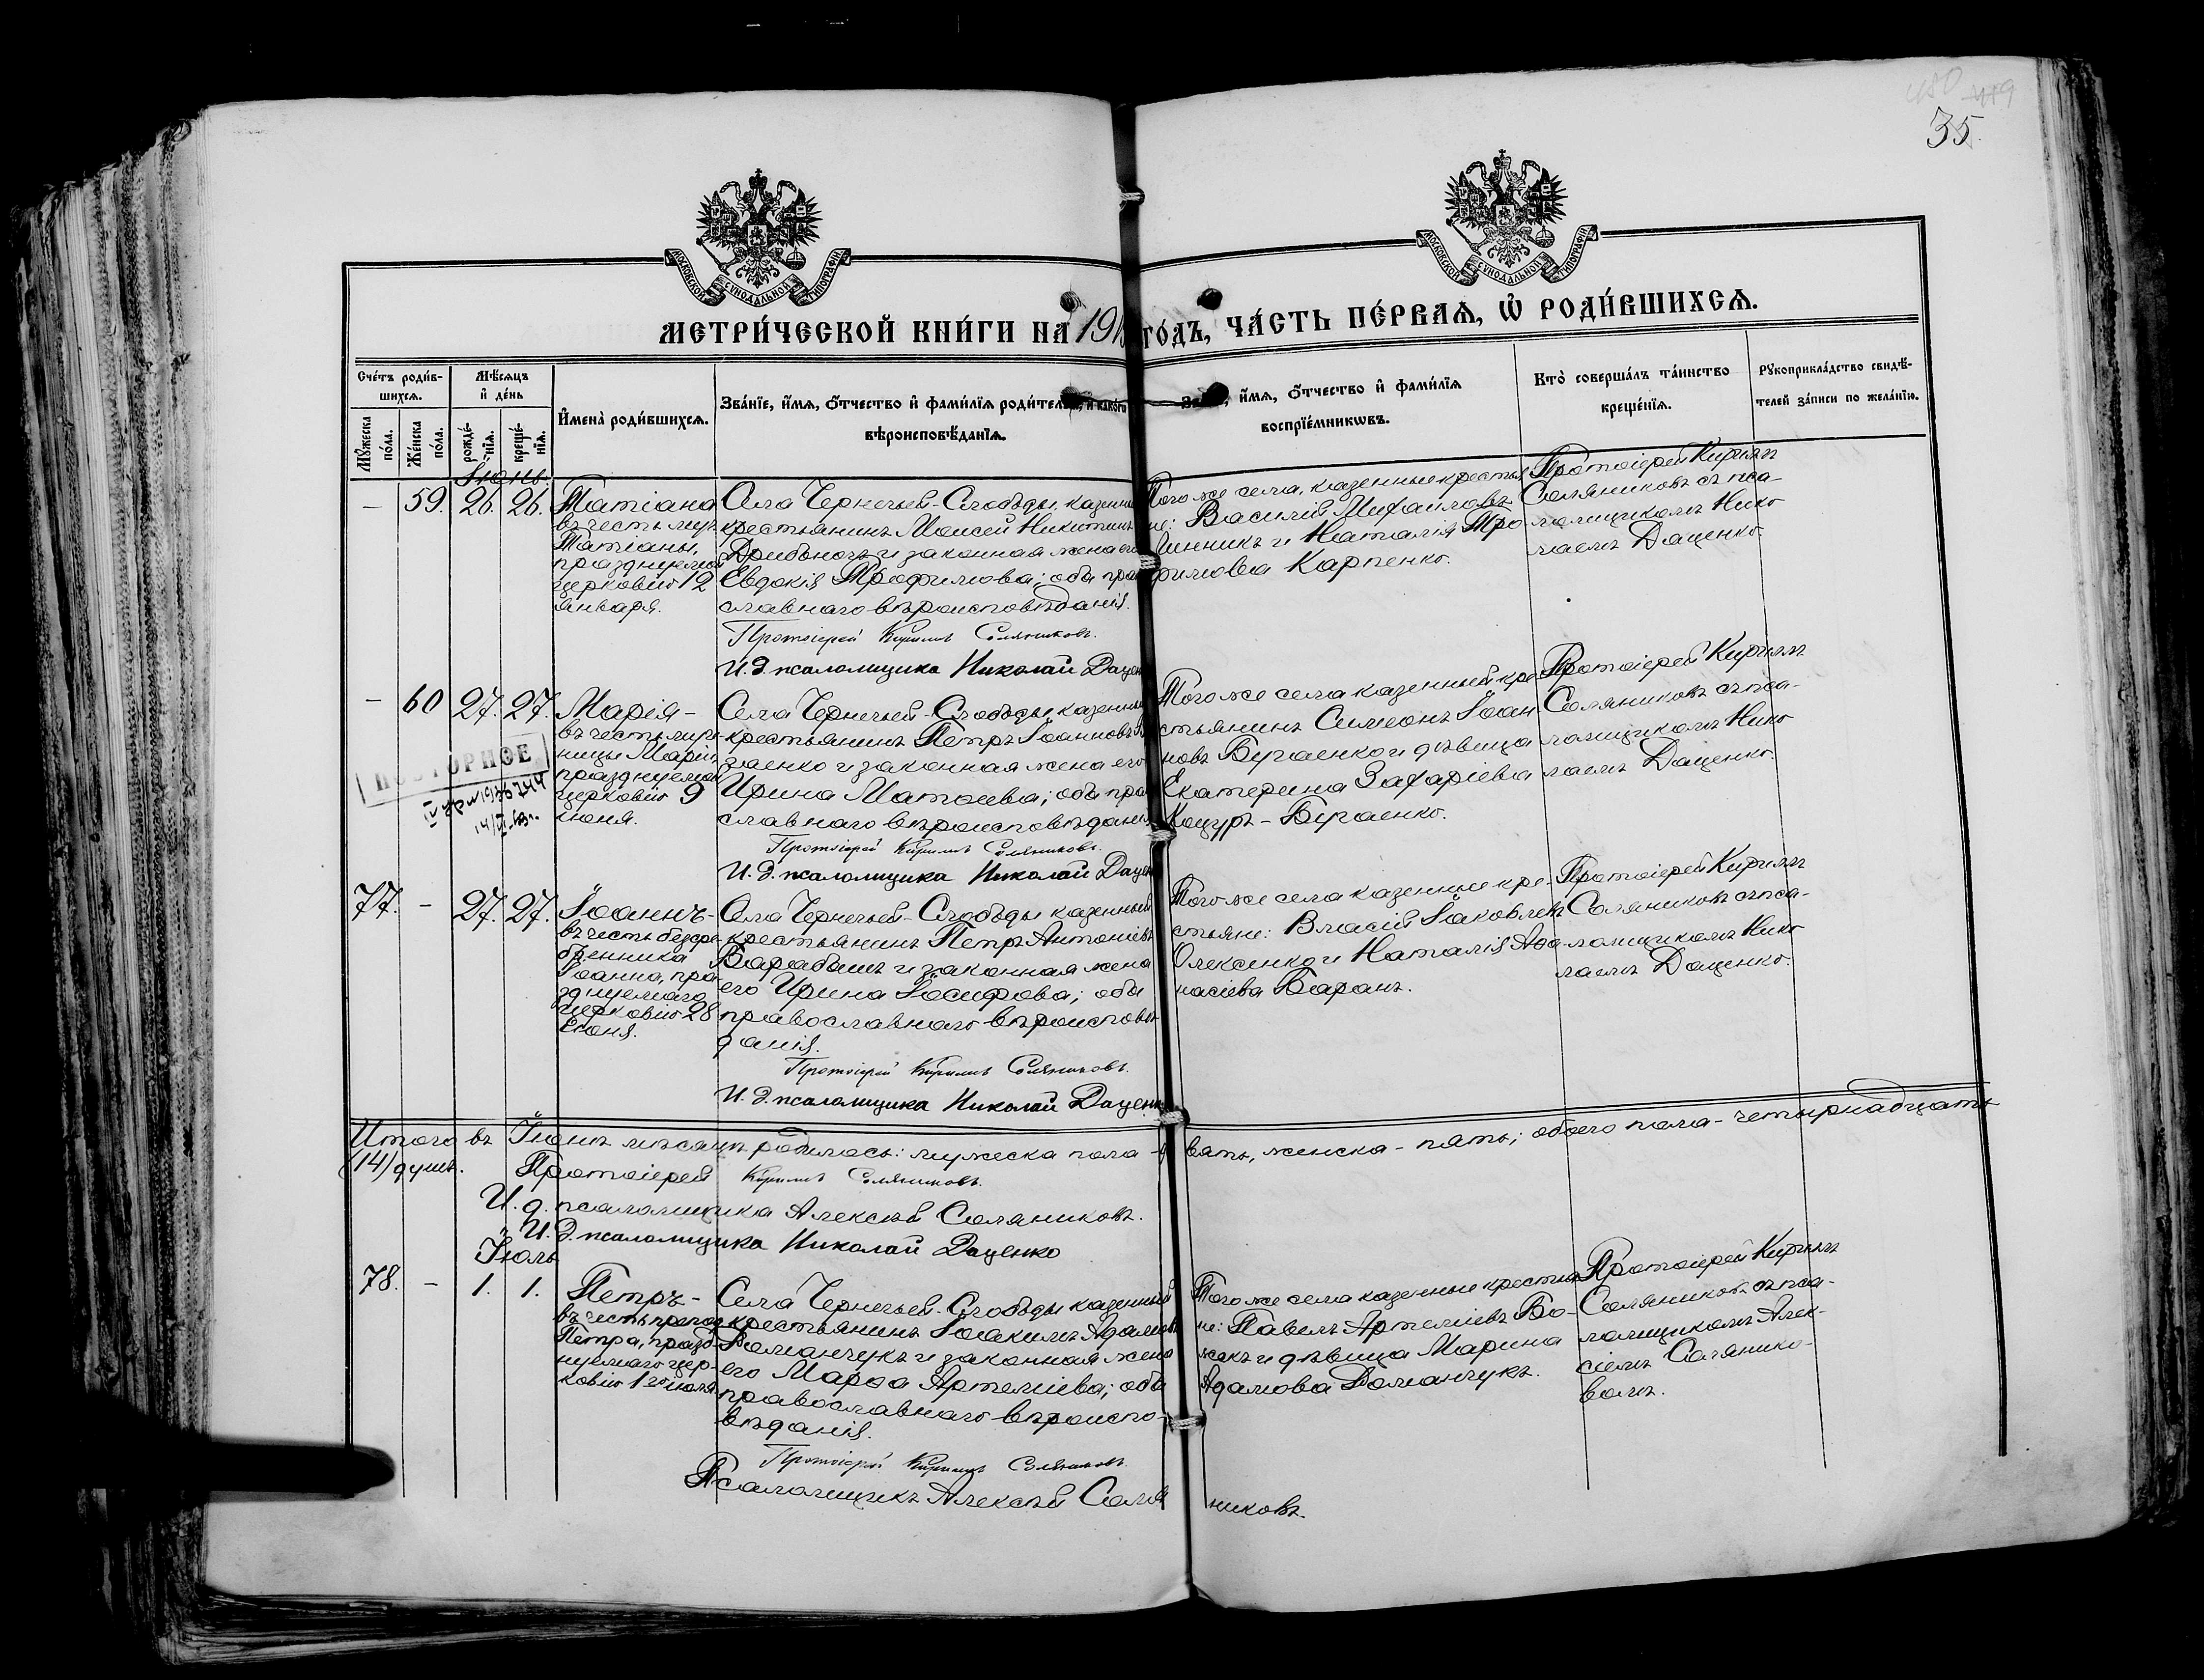 35.
МОСКОВСКОЙ СУНОДАЛЬНОЙ ТИПОГРАФІИ
МОСКОВСКОЙ СУНОДАЛЬНОЙ ТИПОГРАФІИ
МЕТРИ́ЧЕСКОЙ КНИ́ГИ НА 191 ГО́ДЪ, ЧА́СТЬ ПЕ́РВАѦ, Ѽ РОДИ́ВШИХСѦ.
Сче́тъ роди́в-
шихсѧ.
Мꙋ́жеска по́ла.
Же́нска по́ла.
Мѣ́сѧцъ
и҆ де́нь
рожде́-
нїѧ.
креще́-
нїѧ.
И҆мена̀ роди́вшихсѧ.
Зва́нїе, и҆́мѧ, ѻ҆́тчество и҆ фами́лїѧ роди́телей, и҆ како́гѡ
вѣроисповѣ́данїѧ.
и҆́мѧ, ѻ҆́тчество и҆ фами́лїѧ
воспрїе́мникѡвъ.
Кто̀ соверша́лъ та́инство
креще́нїѧ.
Рꙋкоприкла́дство свидѣ́-
телей за́писи по жела́нїю.
Іюнь.
— 59. 26. 26.
Татіана
въ честь муч.
Татіаны,
празднуемой
церковію 12
Января.
Села Чернечьей-Слободы казенный
крестьянинъ Моисей Никитинъ
и законная жена его
Евдокія Трофимова; оба пра
славнаго вѣроисповѣданія.
Протоіерей Кириллъ Соляниковъ.
И. д. псаломщика Николай Даценко
Того же села, казенные крестья
не: Василий Михайловъ
и Наталія Тро
фимова Карпенко.
Протоіерей Кириллъ
Соляниковъ съ пса-
ломщикомъ Нико
лаемъ Даценко
— 60 27. 27.
Марія-
въ честь муче
ницы Маріи,
празднуемой
церковію 9
июня.
ПОВТОРНОЕ
Села Чернечьей-Слободы казенный
крестьянинъ Петръ Іоанновъ Бу
гаенко и законная жена его
Ирина Матѳеева; оба пра
славнаго вѣроисповѣданія
Протоіерей Кириллъ Соляниковъ.
И. д. псаломщика Николай Даценко
Того же села казенный кре
стьянинъ Симеонъ Іоан
новъ Бугаенко и дѣвица
Екатерина Захаріева
Коцуръ-Бугаенко.
Протоіерей Кириллъ
Соляниковъ съ пса-
ломщикомъ Нико
лаемъ Даценко.
77. — 27. 27.
Іоаннъ-
въ честь безсре-
бренника
Іоанна, пра-
зднуемаго
церковію 28
Іюня.
Села Чернечьей-Слободы казенный
крестьянинъ Петръ Антоніевъ
Барабашъ и законная жена
его Ирина Іосифова; оба
православнаго вѣроисповѣ
данія.
Протоіерей Кириллъ Соляниковъ.
И. д. псаломщика Николай Даценко
Того же села казенные кре-
стьяне: Власій Іаковлевъ
Олексенко и Наталія Аѳа-
насіева Баранъ.
Протоіерей Кириллъ
Соляниковъ съ пса-
ломщикомъ Нико
лаемъ Даценко.
Итого въ Іюнѣ мѣсяцѣ родилось: мужеска пола - девять, женска - пять; обоего пола - четырнадцать
(14) душъ.
Протоіерей Кириллъ Соляниковъ.
И. д. псаломщика Алексѣй Соляниковъ.
И. д. псаломщика Николай Даценко
Іюль
78. — 1. 1.
Петръ-
въ честь препод
Петра, празд-
нуемаго цер-
ковію 1го июля
Села Чернечьей-Слободы казенный
крестьянинъ Іоакимъ Адамовъ
Романчукъ и законная жена
его Марѳа Артеміева; оба
православнаго вѣроиспо-
вѣданія.
Протоіерей Кириллъ Соляниковъ
Псаломщикъ Алексѣй Соляниковъ.
Того же села казенные крестья
не: Павелъ Артеміевъ Бо-
жокъ и дѣвица Марина
Адамова Романчукъ.
Протоіерей Кириллъ
Соляниковъ съ пса-
ломщикомъ Алек-
сіемъ Соляннико-
вомъ.